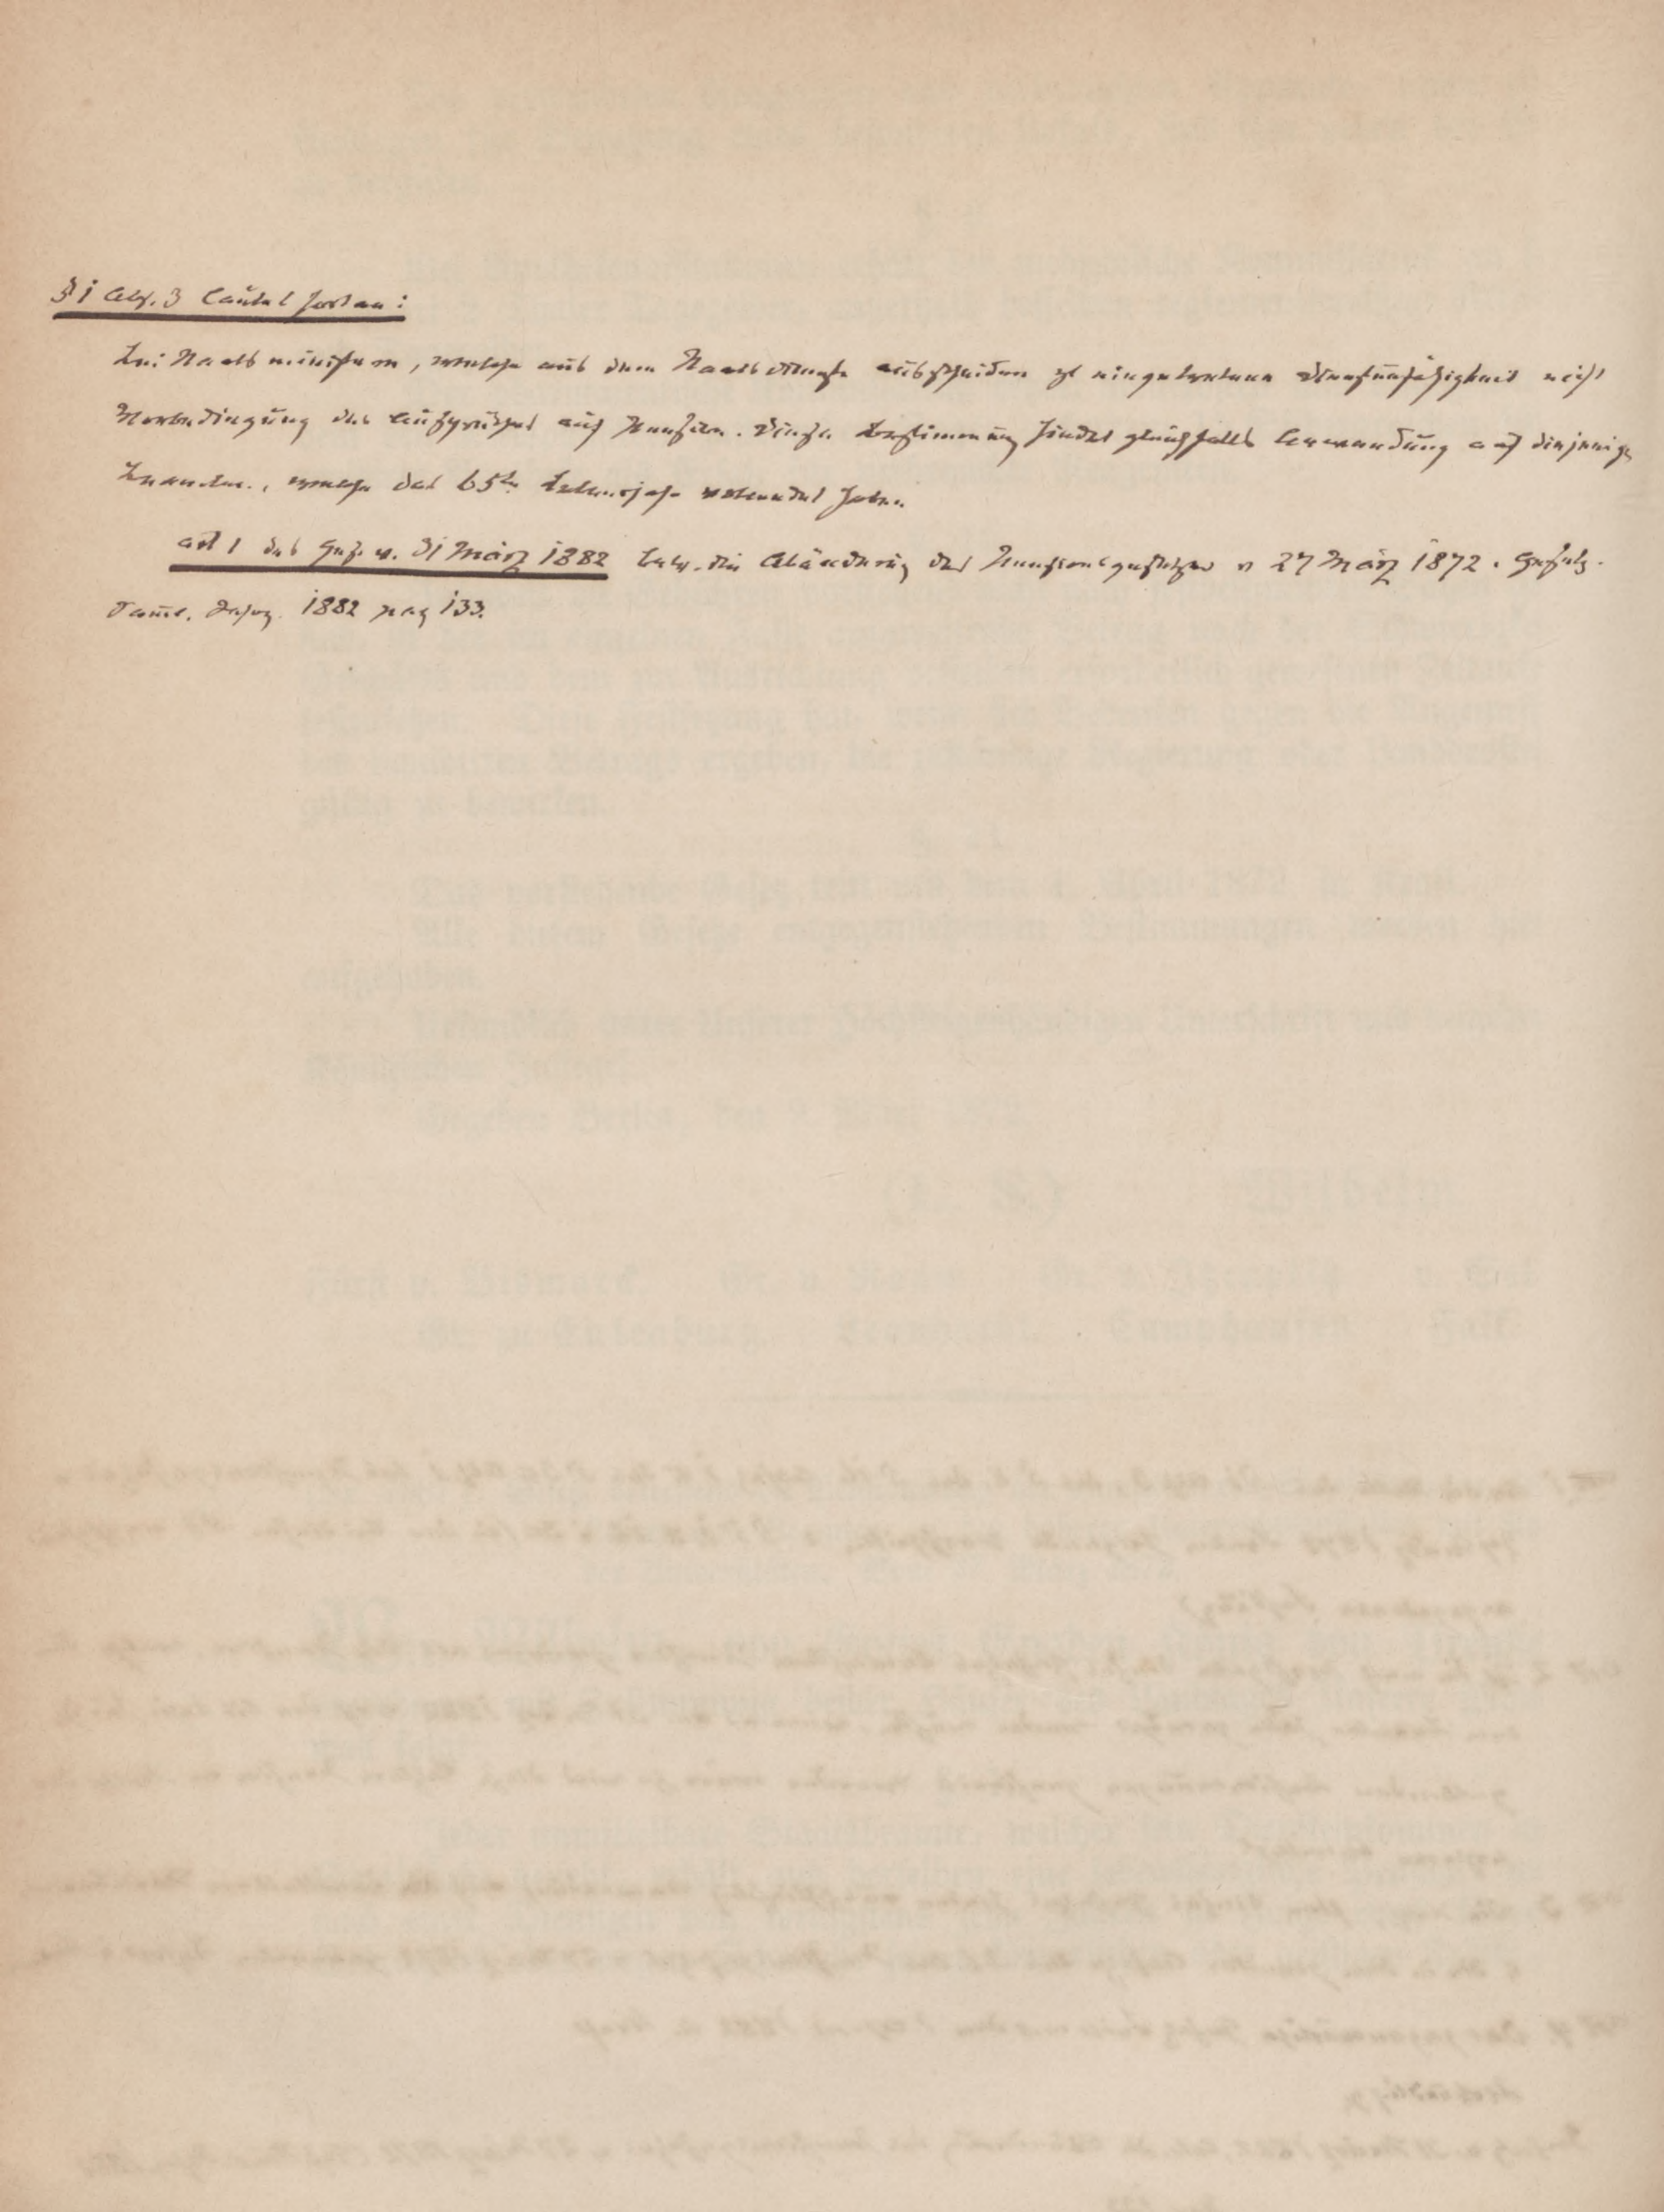 § 1 Abs. 3 lautet fortan:
Bei Staatsministern, welche aus dem Staatsdienste ausscheiden ist eingetretene Dienstunfähigkeit nicht
Vorbedingung des Anspruches auf Pension. Diese Bestimmung findet gleichfalls Anwendung auf diejenigen
Beamten, welche das 65te Lebensjahr vollendet haben.
art 1 des Ges. v. 31 März 1882 betr. die Abänderung des Pensionsgesetzes v 27 März 1872. Gesetz-
Samml. 1882 pag 133.